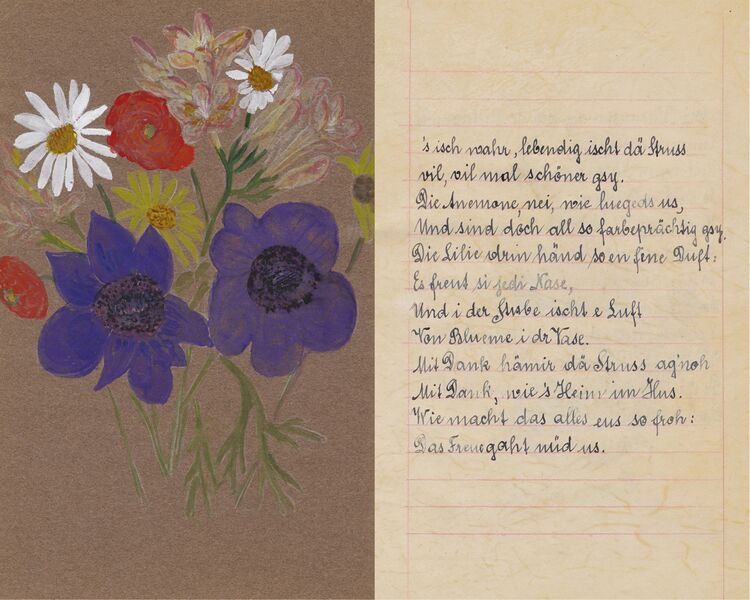 's isch wahr, lebendig ischt dä Struss
vil, vil mal schöner gsy.
Die Anemone, nei, wie luegeds us,
Und sind doch all so farbeprächtig gsy.
Die Lilie drin händ so en fine Duft:
Es freut si jedi Nase,
Und i der Stube ischt e Luft
Von Blueme i dr Vase.
Mit Dank hämir dä Struss ag'noh
Mit Dank, wie s Heim im Hus.
Wie macht das alles eus so froh:
Das Freue gaht nüd us.